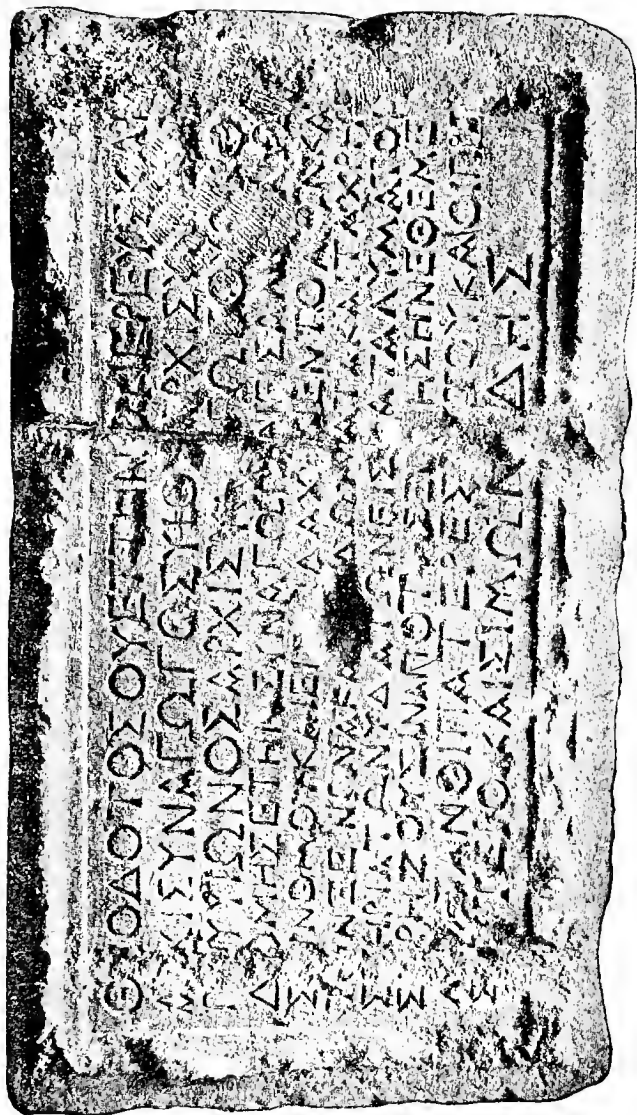 ΘΕΟΔΟΤΟΣ ΟΥΕΤΤΗΝΟΥ ΙΕΡΕΥΣ ΚΑΙ
ΑΡΧΙΣΥΝΑΓΩΓΟΣ ΥΙΟΣ
ΥΙΩΝΟΣ ΑΡΧΙΣ
ΔΟΜΗΣΕ ΤΗΝ ΣΥΝΑΓΩΓ
ΝΟΜΟΥ ΚΑΙ ΕΙΣ ΕΝΤΟΛΩΝ ΚΑΙ
ΞΕΝΩΝΑ ΔΩΜΑΤΑ ΚΑΙ ΤΑ ΧΡΗ
ΣΤΗΡΙΑ ΤΩΝ ΥΔΑΤΩΝ ΕΙΣ ΚΑΤΑΛΥΜΑ ΤΟΙ
Σ ΧΡΗΖΟΥΣΙΝ ΑΠΟ ΤΗΣ ΞΕΝΗΣ ΗΝ ΕΘΕΜΕ
ΟΙ ΠΑΤΕΡΕΣ ΑΥΤΟΥ ΚΑΙ ΟΙ ΠΡΕ
ΣΒΥΤΕΡΟΙ ΚΑΙ ΣΙΜΩΝΙΔΗΣ